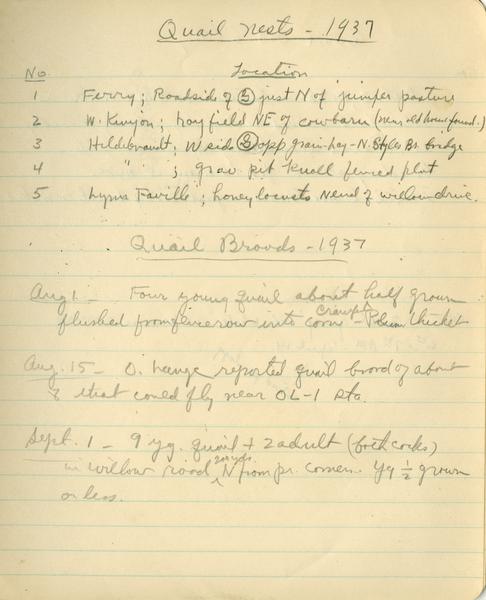 Quail Nests - 1937
No. Location
1 Ferry; Roadside of S just N of juniper pasture
2 W. Kinyon; hayfield NE of cowbarn (near old house found.)
3 Hildebrandt; W side S opp grain-hay - N. Styles Br. bridge
4 " " ; grav pit knoll fenced plot
5 Lyma Faville; honeylocusts N end of willow drive.
Quail Broods - 1937
Aug 1 - Four young quail about half grown
flushed from fencerow into corn - Plum thicket
Aug. 15 - O. Lange reported quail brood of about
8 that could fly near OL-1 sta.
Sept. 1 - 9 yg. quail + 2 adult (both cocks)
in willow road N from pr. corner. Yg ½ grown
or less.